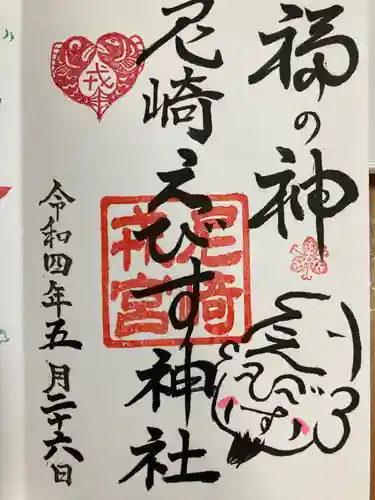 福の神
えびす
尼崎えびす神社
尼崎
戎宮
戎
令和四年五月二十六日